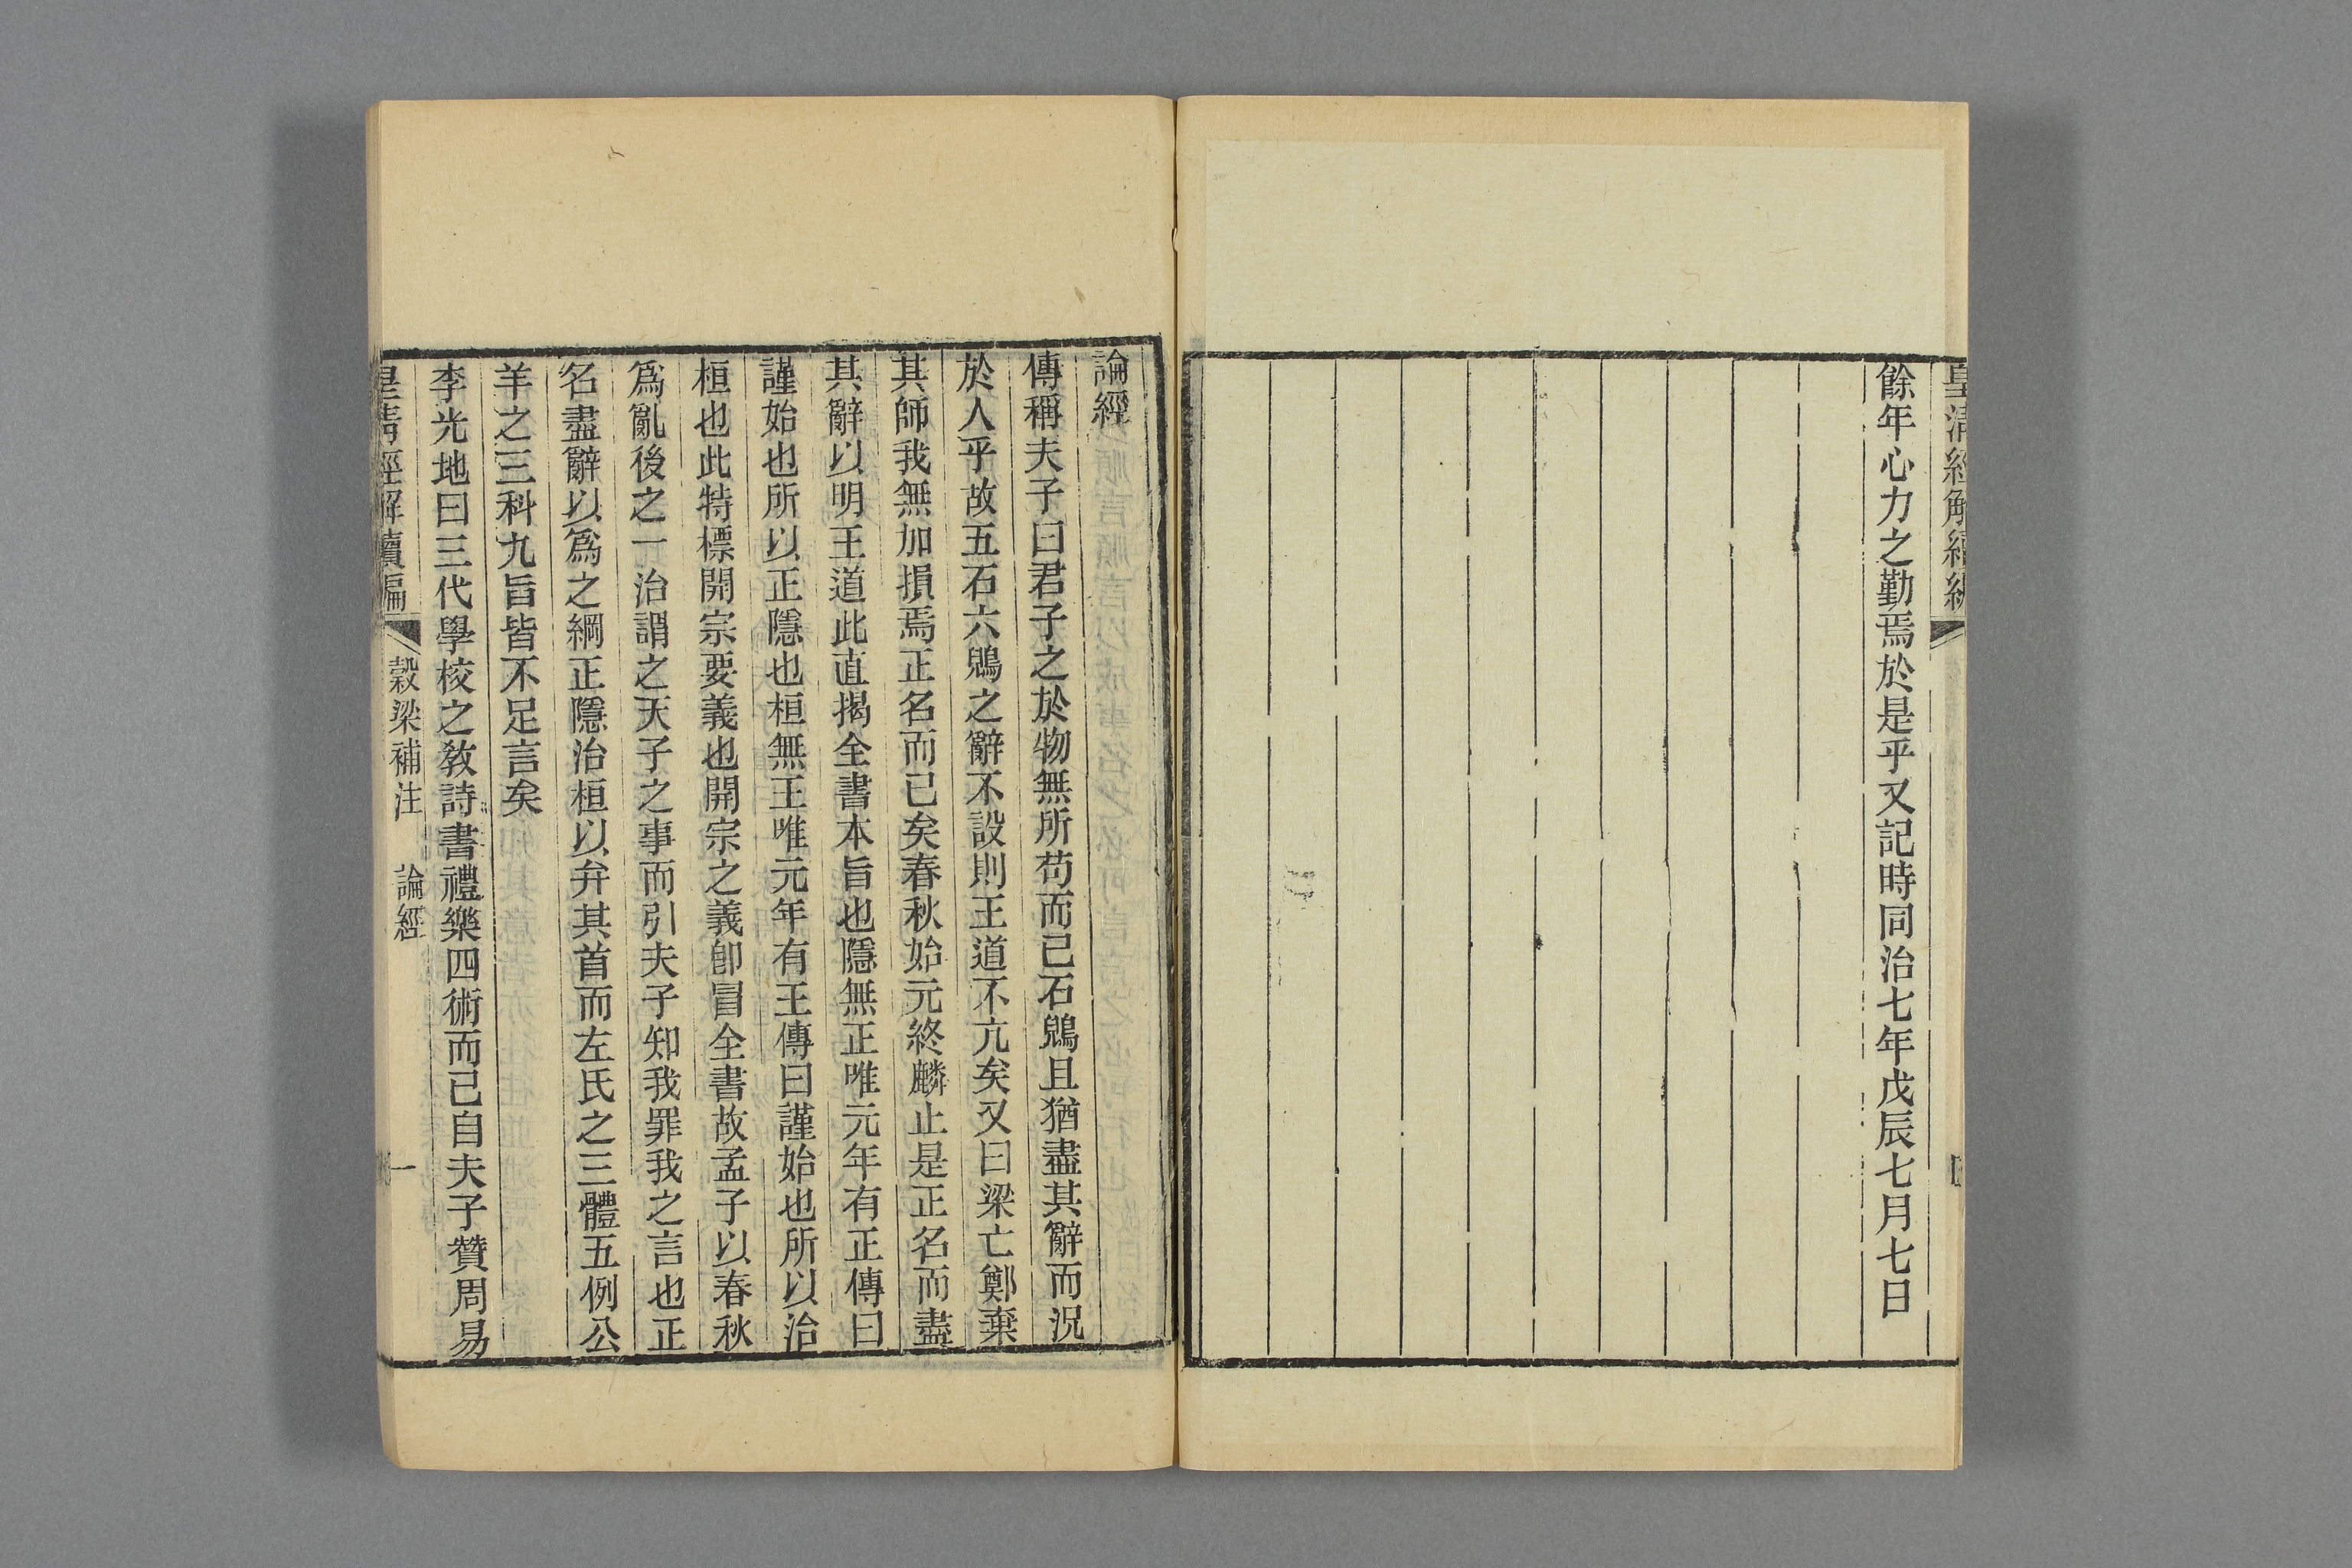 皇清經解續編
餘年心力之勤焉於是乎又記時同治七年戊辰七月七日
論經
傳稱夫子曰君子之於物無所苟而已石鶂且猶盡其辭而況
於人乎故五石六鶂之辭不設則王道不亢矣又曰梁亡鄭棄
其師我無加損焉正名而已矣春秋始元終麟止是正名而盡
其辭以明王道此直揭全書本旨也隱無正唯元年有正傳曰
謹始也所以正隱也桓無王唯元年有王傳曰謹始也所以治
桓也此特標開宗要義也開宗之義卽冒全書故孟子以春秋
爲亂後之一治謂之天子之事而引夫子知我罪我之言也正
名盡辭以爲之綱正隱治桓以弁其首而左氏之三體五例公
羊之三科九旨皆不足言矣
李光地曰三代學校之敎詩書禮樂四術而已自夫子贊周易
皇清經解續編 穀梁補注 論經 一